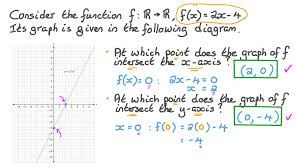 Consider the function f: ℝ → ℝ, f(x) = 2x - 4
Its graph is given in the following diagram.
• At which point does the graph of f
intersect the x-axis?
(2, 0) ✓
f(x) = 0 : 2x - 4 = 0
x = 2
• At which point does the graph of f
intersect the y-axis?
(0, -4) ✓
x = 0 : f(0) = 2(0) - 4
= -4